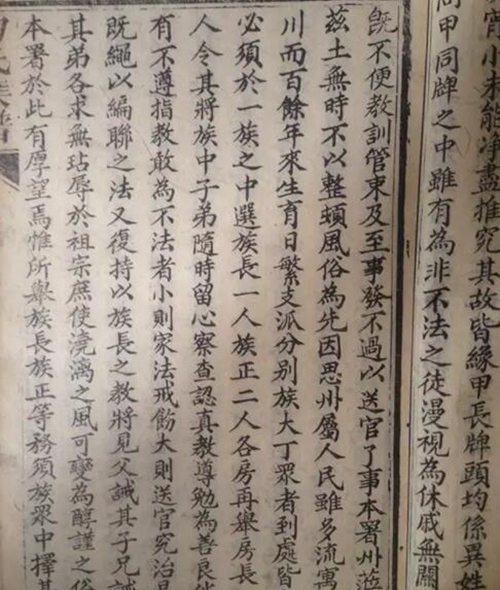 宵小未能淨盡推究其故皆緣甲長牌頭均係異姓
同甲同牌之中雖有為非不法之徒漫視為休戚無關
既不便教訓管束及至事發不過以送官了事本署州蒞
茲土無時不以整頓風俗為先因思州屬人民雖多流寓
川而百餘年來生育日繁支派分別族大丁眾者到處皆
必須於一族之中選族長一人族正二人各房再舉房長
人令其將族中子弟隨時留心察查認真教導勉為善良
有不遵指教敢為不法者小則家法戒飭大則送官究治
既繩以編聯之法又復持以族長之教將見父誡其子兄誡
其弟各求無玷辱於祖宗庶使澆漓之風可變為醇謹之俗
本署於此有厚望焉惟所舉族長族正等務須族眾中擇其
氏族譜